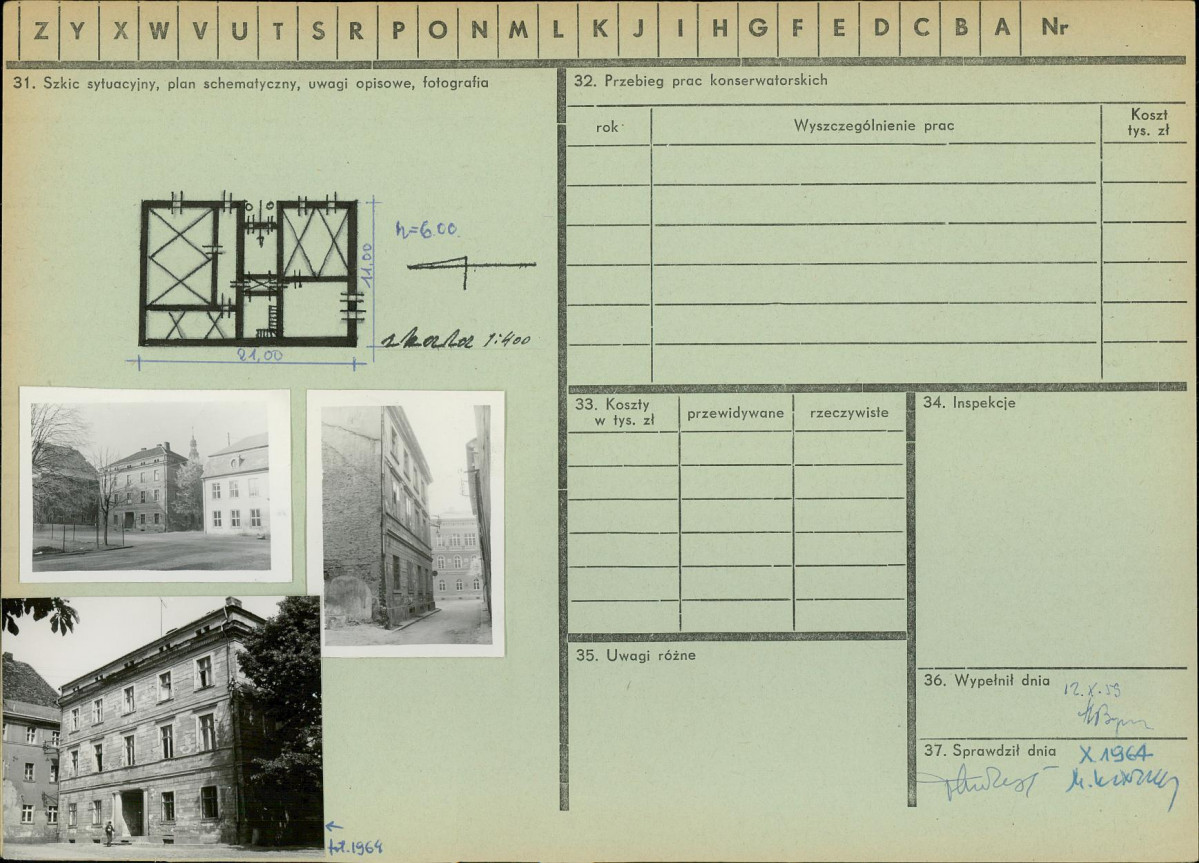 Z Y X W V U T S R P O N M L K J I H G F E D C B A Nr
31. Szkic sytuacyjny, plan schematyczny, uwagi opisowe, fotografia
h=6.00.
11,00
skala 1:400
21,00
fot. 1964
32. Przebieg prac konserwatorskich
rok
Wyszczególnienie prac
Koszt
tys. zł
33. Koszty
w tys. zł
przewidywane
rzeczywiste
34. Inspekcje
35. Uwagi różne
36. Wypełnił dnia 12.X.59
37. Sprawdził dnia X 1964